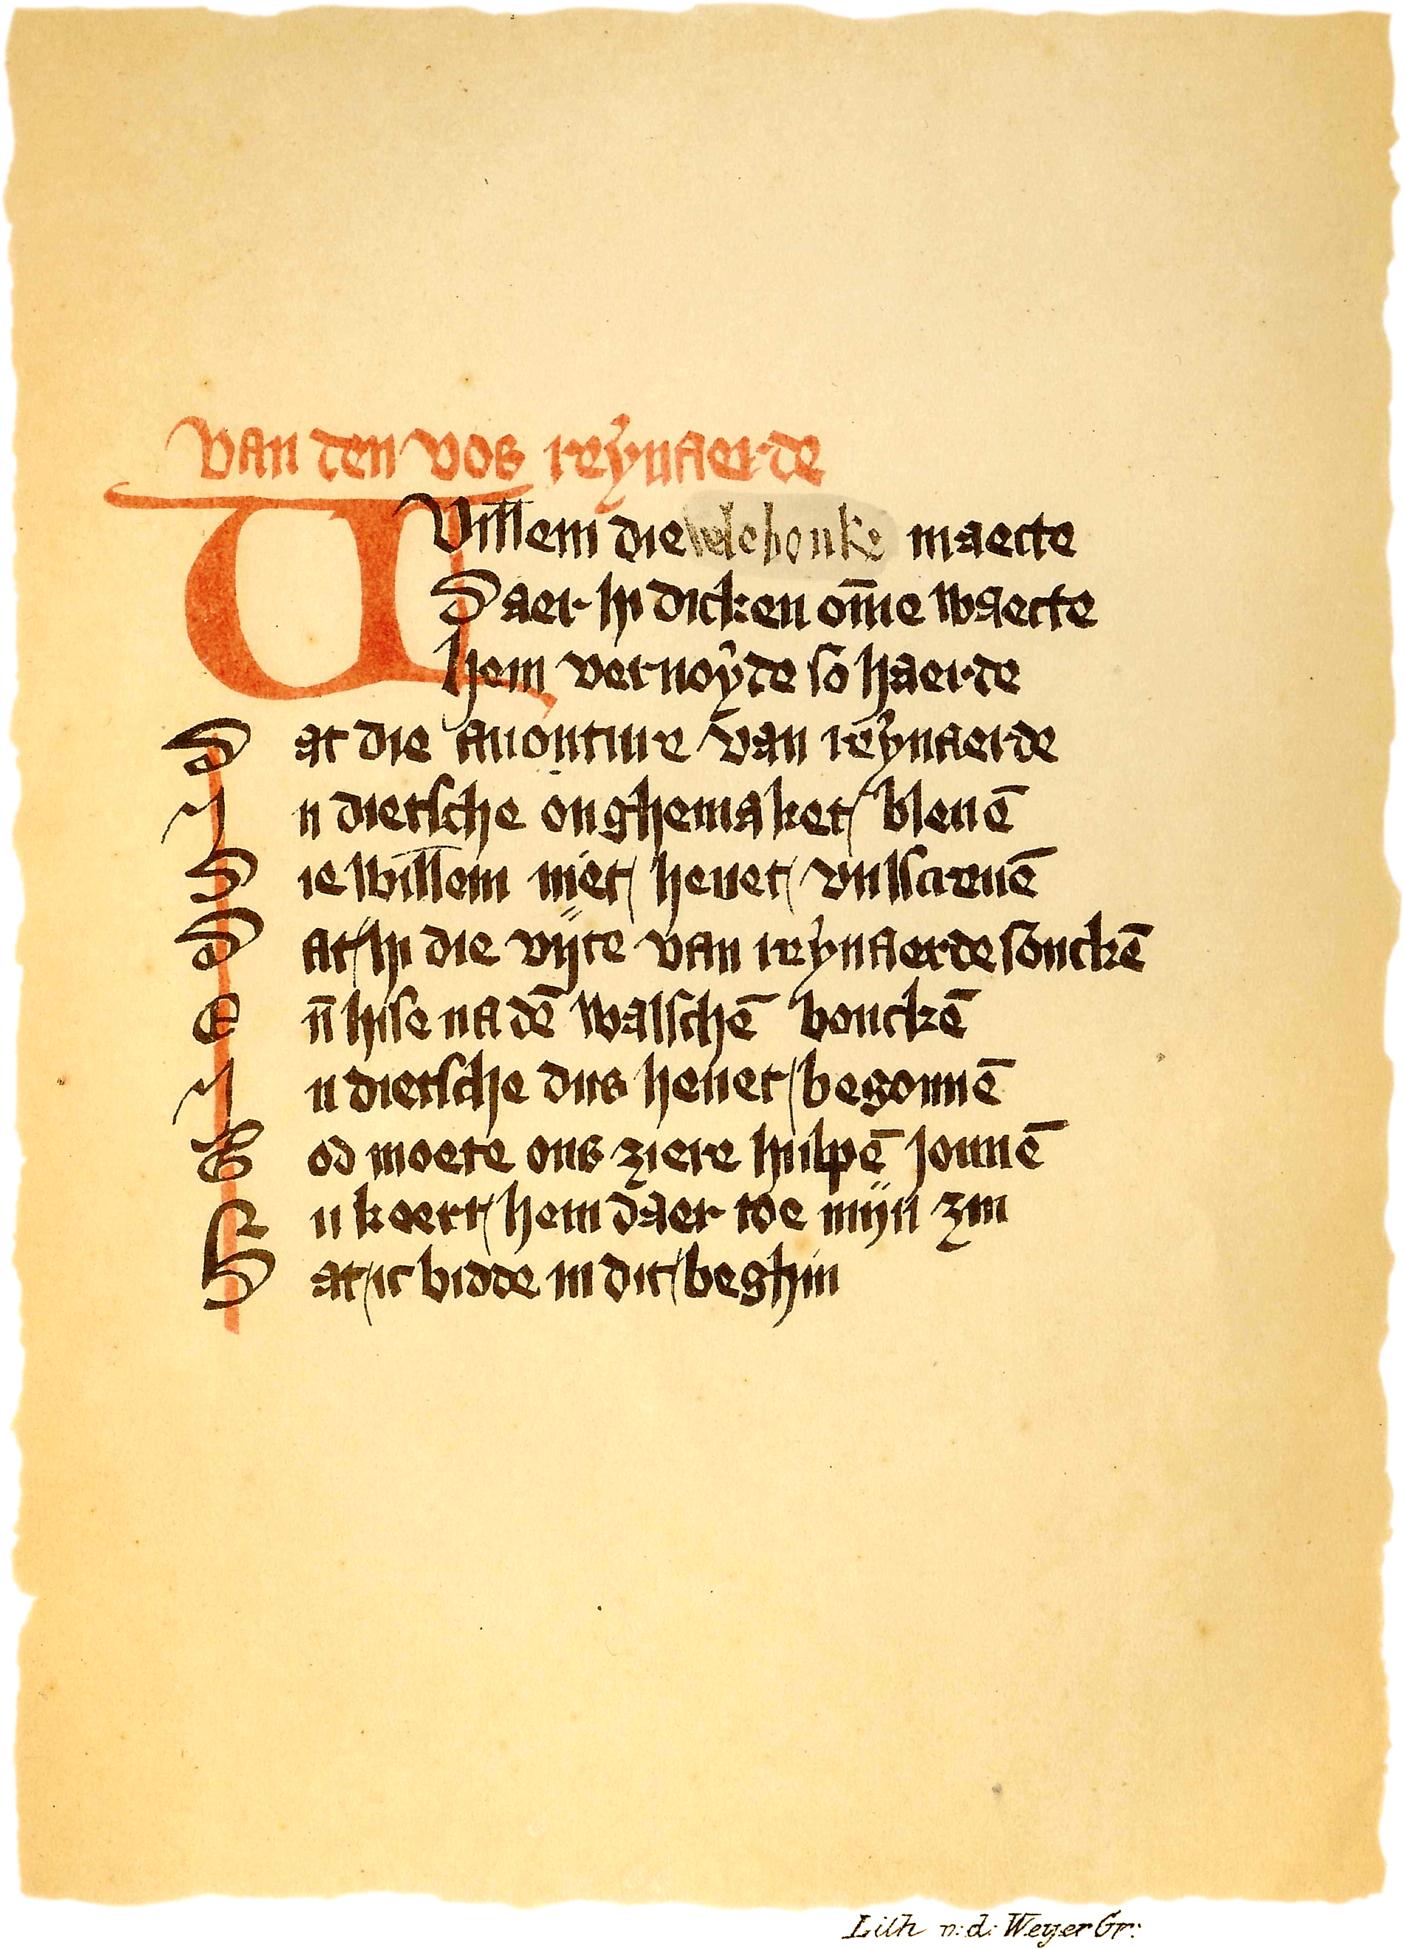 van den vos reẏnaerde
Willem die vele bouke maecte
Daer hi dicken om̄e waecte
hem vernoẏde so haerde
D at die auonture van reẏnaerde
J n dietsche onghemaket/ bleuē
D ie willem niet/ heuet/ vulscreuē
D at/hi die vijte van reẏnaerde soucken̄
E n̄ hise na dē walschē bouckē
J n dietsche dus heuet/begonnē
G od moete ons ziere hulpē jonnē
N u keert/hem daer toe mijn zin
D at/ic bidde in dit/beghin
Lith v: d: Weyer Gr: